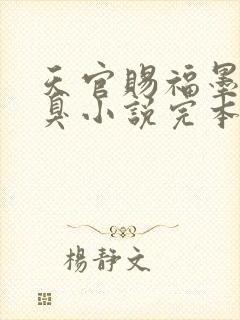 天官賜福墨
真小說完本
楊靜文